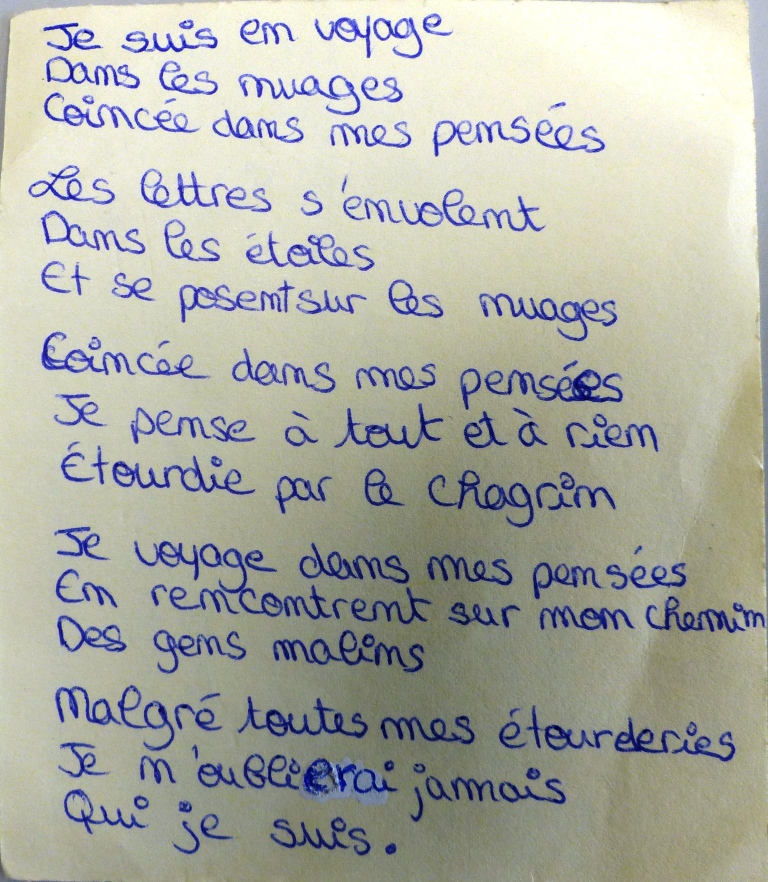 Je suis en voyage
Dans les nuages
Coincée dans mes pensées
Les lettres s'envolent
Dans les étoiles
Et se posent sur les nuages
Coincée dans mes pensées
Je pense à tout et à rien
Étourdie par le chagrin
Je voyage dans mes pensées
En rencontrent sur mon chemin
Des gens malins
Malgré toutes mes étourderies
Je n'oublierai jamais
Qui je suis.